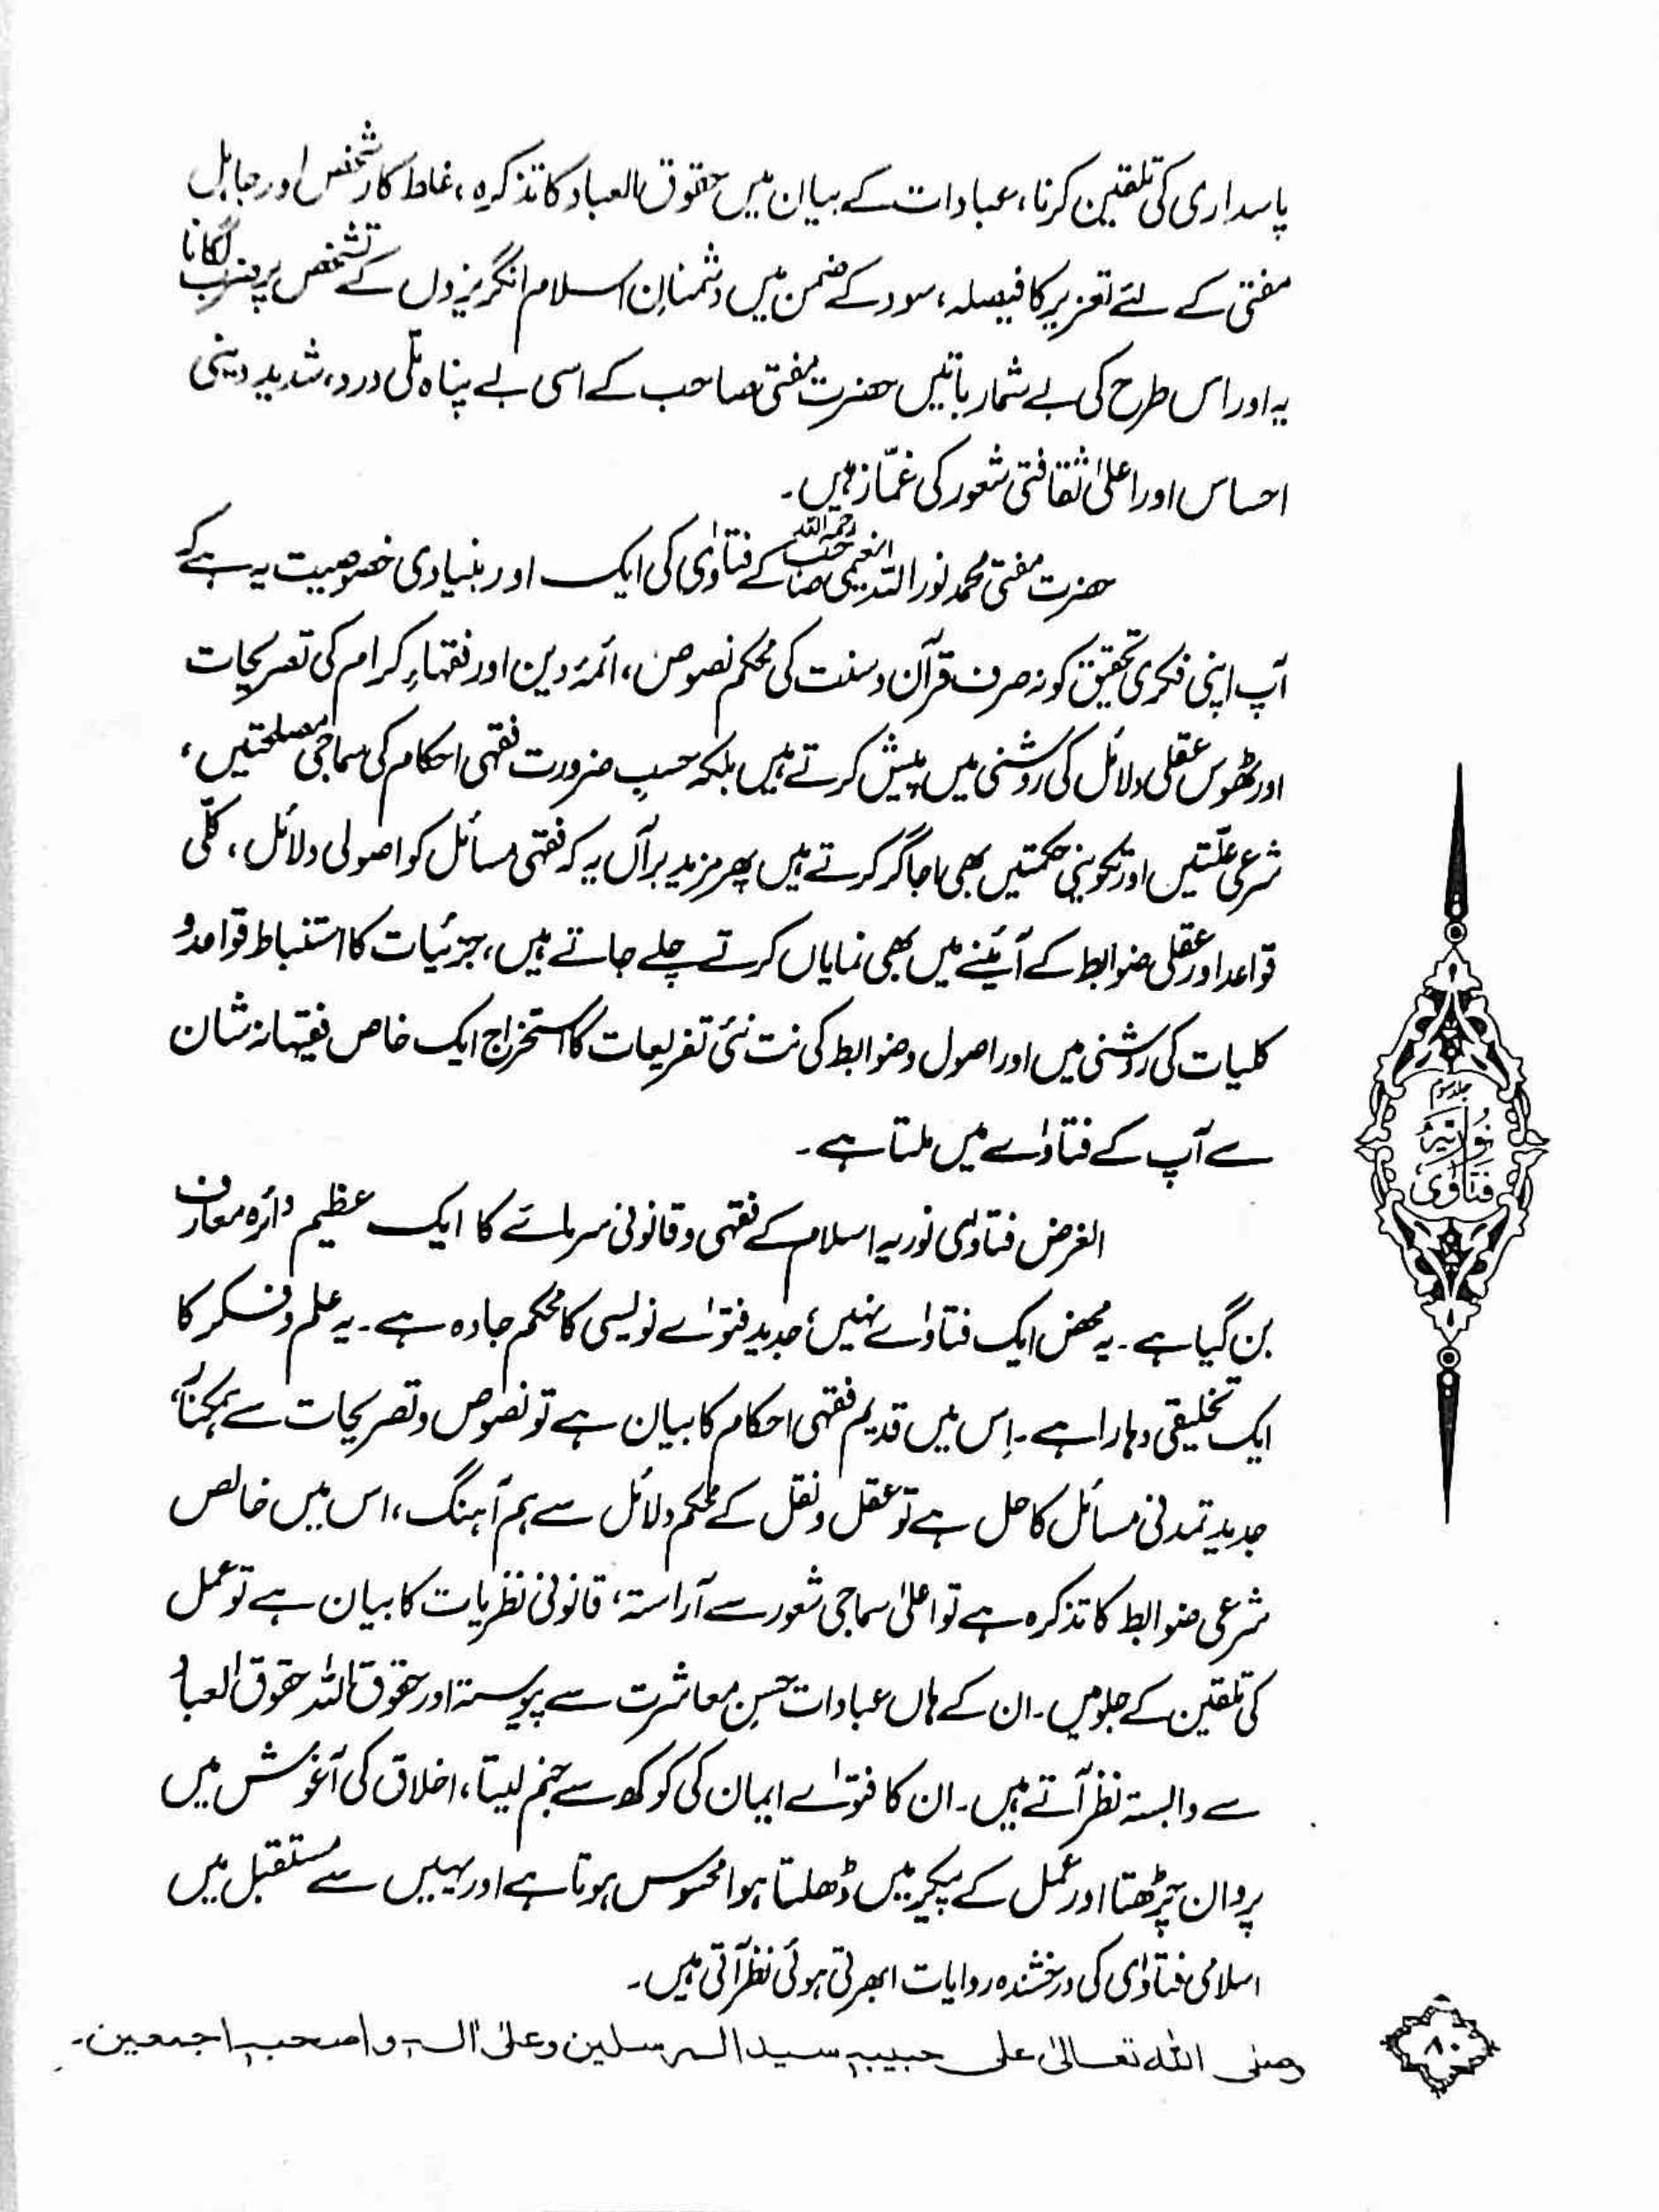 پاسداری کی تلقین کرنا، عبادات کے بیان میں حقوق العباد کا تذکرہ، غلط کار شخص اور جاہل
مفتی کے لئے تعزیر کا فیصلہ، سود کے ضمن میں دشمنانِ اسلام انگریزوں کے تشخص پر ضرب لگانا
یہ اور اس طرح کی بے شمار باتیں حضرت مفتی صاحب کے اسی بے پناہ ملّی درد، شدید دینی
احساس اور اعلیٰ ثقافتی شعور کی غمّاز ہیں۔
حضرت مفتی محمد نور اللہ نعیمی صاحب رحمہ اللہ کے فتاوٰی کی ایک اور بنیادی خصوصیت یہ ہے کہ
آپ اپنی فکری تحقیق کو نہ صرف قرآن و سنت کی محکم نصوص، ائمۂ دین اور فقہاءِ کرام کی تصریحات
اور ٹھوس عقلی دلائل کی روشنی میں پیش کرتے ہیں بلکہ حسبِ ضرورت فقہی احکام کی سماجی مصلحتیں،
شرعی علّتیں اور تکوینی حکمتیں بھی اجاگر کرتے ہیں پھر مزید برآں یہ کہ فقہی مسائل کو اصولی دلائل، کلّی
قواعد اور عقلی ضوابط کے آئینے میں بھی نمایاں کرتے چلے جاتے ہیں، جزئیات کا استنباط قواعد و
کلیات کی روشنی میں اور اصول و ضوابط کی نت نئی تفریعات کا استخراج ایک خاص فقیہانہ شان
سے آپ کے فتاوٰے میں ملتا ہے۔
الغرض فتاوٰی نوریہ اسلام کے فقہی و قانونی سرمائے کا ایک عظیم دائرہ معارف
بن گیا ہے۔ یہ محض ایک فتاوٰے نہیں، جدید فتوٰے نویسی کا محکم جادہ ہے۔ یہ علم و فکر کا
ایک تخلیقی دھارا ہے۔ اِس میں قدیم فقہی احکام کا بیان ہے تو نصوص و تصریحات سے ہمکنار،
جدید تمدنی مسائل کا حل ہے تو عقل و نقل کے محکم دلائل سے ہم آہنگ، اس میں خالص
شرعی ضوابط کا تذکرہ ہے تو اعلیٰ سماجی شعور سے آراستہ، قانونی نظریات کا بیان ہے تو عمل
کی تلقین کے جلو میں۔ ان کے ہاں عبادات حسنِ معاشرت سے پیوستہ اور حقوق اللہ حقوق العباد
سے وابستہ نظر آتے ہیں۔ ان کا فتوٰے ایمان کی کوکھ سے جنم لیتا، اخلاق کی آغوش میں
پروان چڑھتا اور عمل کے پیکر میں ڈھلتا ہوا محسوس ہوتا ہے اور یہیں سے مستقبل میں
اسلامی فتاوٰی کی درخشندہ روایات ابھرتی ہوئی نظر آتی ہیں۔
وصلی اللہ تعالیٰ علی حبیبہ سید المرسلین وعلیٰ اٰلہ واصحبہ اجمعین۔
جلد سوم
نُورِیَّہ
فَتَاوٰی
۸۰